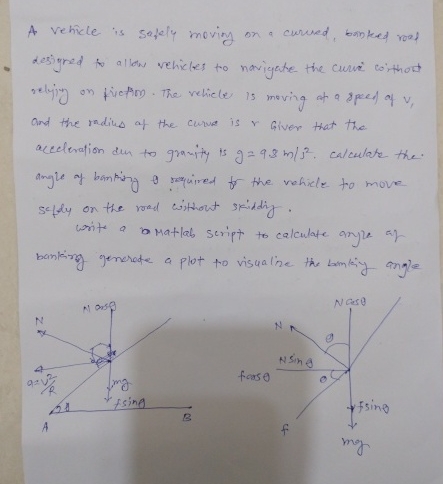 A vehicle is safely moving on a curved, banked road
designed to allow vehicles to navigate the curve without
relying on friction. The vehicle is moving at a speed of v,
and the radius of the curve is r Given that the
acceleration due to gravity is g = 9.8 m/s². calculate the
angle of banking θ required for the vehicle to move
safely on the road without skidding.
write a Matlab script to calculate angle of
banking generate a plot to visualize the banking angle
N cosθ
N
a=v²/R
mg
fsinθ
θ
A
B
N cosθ
N
θ
N sinθ
fcosθ
θ
fsinθ
f
mg